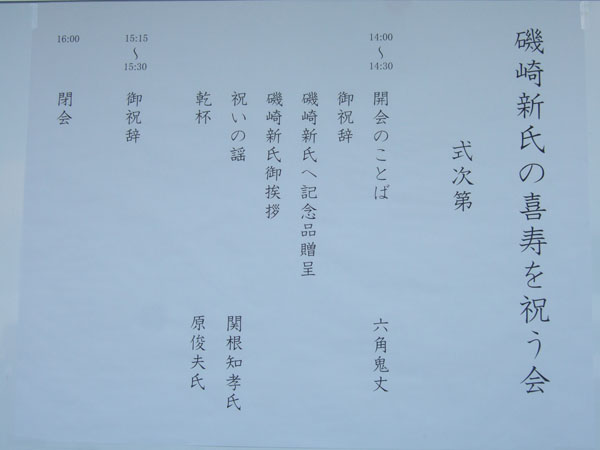 磯崎新氏の喜寿を祝う会
式次第
14:00
～
14:30
開会のことば 六角鬼丈
御祝辞
磯崎新氏へ記念品贈呈
磯崎新氏御挨拶
祝いの謡 関根知孝氏
乾杯 原俊夫氏
15:15
～
15:30
御祝辞
16:00
閉会